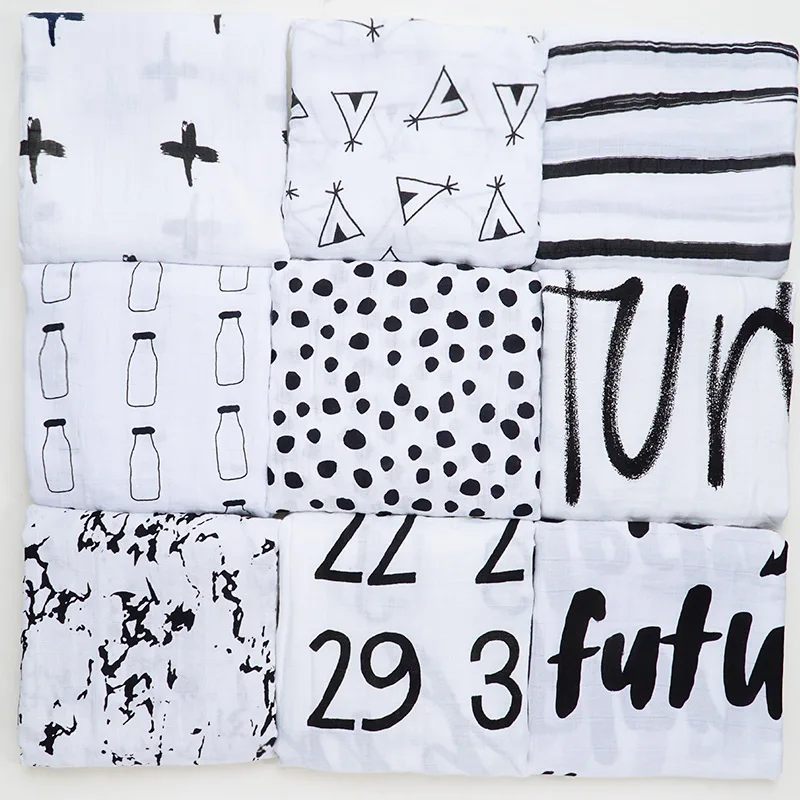 fun
22 2
29 3
futu